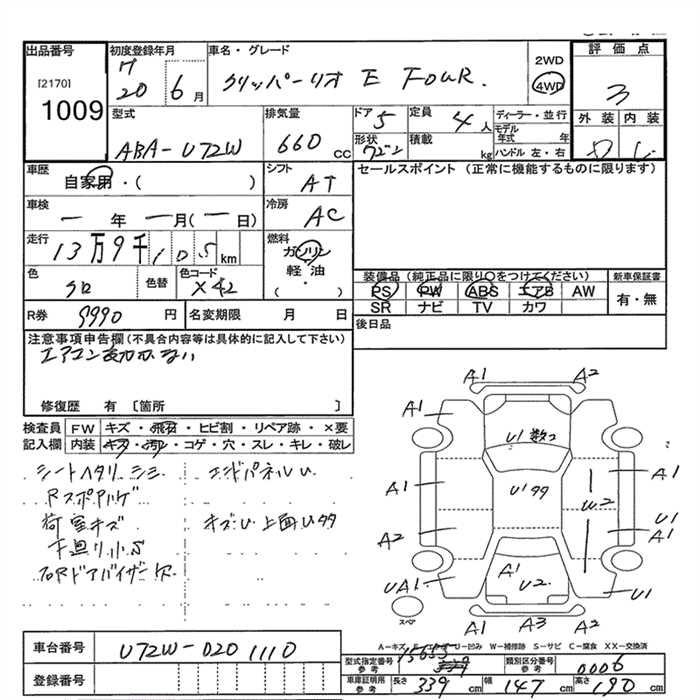 出品番号
[2170]
1009
初度登録年月
H
20 6月
車名・グレード
クリッパーリオ E FOUR.
2WD
4WD
評価点
3
外装 内装
D C
型式
ABA-U72W
排気量
660 cc
ドア 5
形状 ワゴン
定員 4人
積載 kg
ディーラー・並行
モデル年式 年
ハンドル 左・右
車歴
自家用・( )
シフト
AT
車検
ー年ー月(ー日)
冷房
AC
走行
13万9千105km
燃料
ガソリン
軽油
・
( )
色
シロ
色替
色コード
X42
R券 9990円
名変期限 月 日
セールスポイント (正常に機能するものに限ります)
装備品 (純正品に限り○をつけてください)
PS PW ABS エアB AW
SR ナビ TV カワ
新車保証書
有・無
後日品
注意事項申告欄(不具合内容等は具体的に記入して下さい)
エアコン効かない
修復歴 有 〔箇所 〕
検査員記入欄
FW キズ・飛石・ヒビ割・リペア跡・×要
内装 キズ・汚レ・コゲ・穴・スレ・キレ・破レ
シートヘタリ シミ エンドパネルU
Rスポハゲ
荷室キズ キズU 上面Uタタ
下廻り小S
フロRドアバイザー欠
A1 A2
A1 A1
U1 数ヶ
A1 U1タタ W2 A1
U1
A2 A1
A1
UA1 U2 U1
A1 A3 A2
スペア
A-キズ U-凹ミ W-補修跡 S-サビ C-腐食 XX-交換済
車台番号
U72W-0201110
登録番号
型式指定番号 参考
15655
類別区分番号 参考
0006
車庫証明用 参考
長さ 339cm 幅 147cm 高さ 190cm